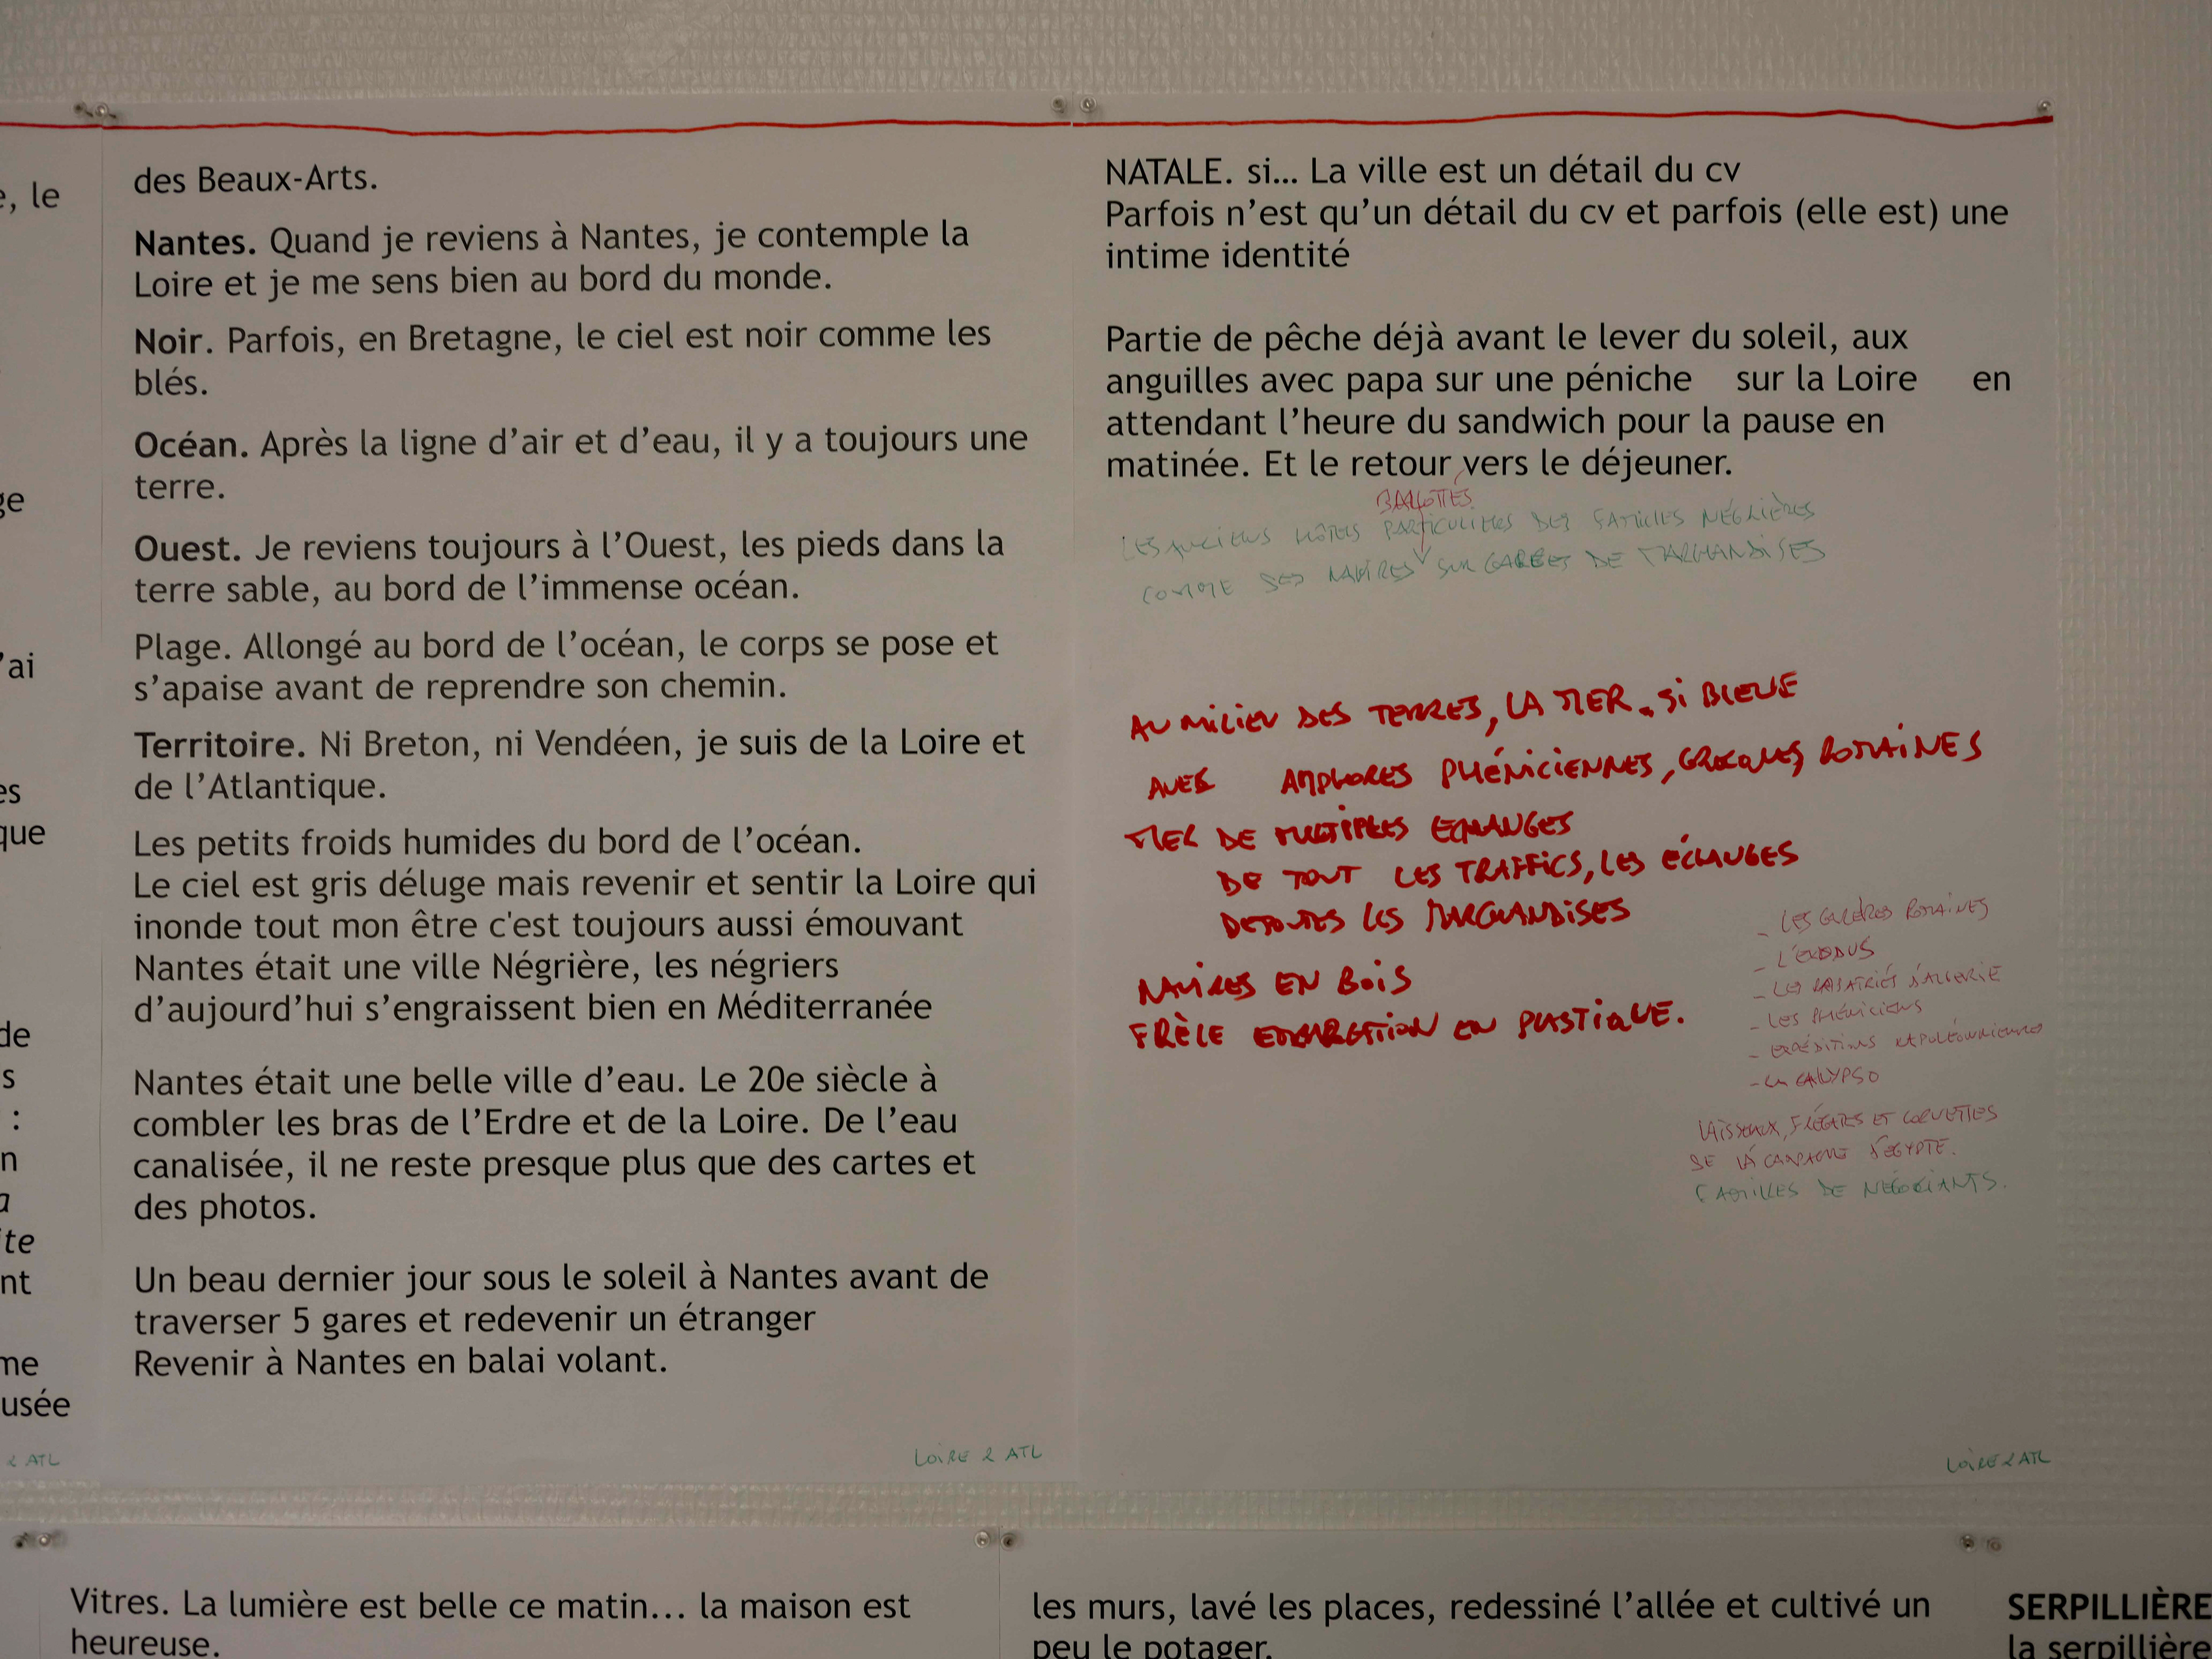 , le
ge
'ai
es
que
de
s
:
n
a
ite
nt
me
usée
& ATL
des Beaux-Arts.
Nantes. Quand je reviens à Nantes, je contemple la
Loire et je me sens bien au bord du monde.
Noir. Parfois, en Bretagne, le ciel est noir comme les
blés.
Océan. Après la ligne d’air et d’eau, il y a toujours une
terre.
Ouest. Je reviens toujours à l’Ouest, les pieds dans la
terre sable, au bord de l’immense océan.
Plage. Allongé au bord de l’océan, le corps se pose et
s’apaise avant de reprendre son chemin.
Territoire. Ni Breton, ni Vendéen, je suis de la Loire et
de l’Atlantique.
Les petits froids humides du bord de l’océan.
Le ciel est gris déluge mais revenir et sentir la Loire qui
inonde tout mon être c'est toujours aussi émouvant
Nantes était une ville Négrière, les négriers
d’aujourd’hui s’engraissent bien en Méditerranée
Nantes était une belle ville d’eau. Le 20e siècle à
combler les bras de l’Erdre et de la Loire. De l’eau
canalisée, il ne reste presque plus que des cartes et
des photos.
Un beau dernier jour sous le soleil à Nantes avant de
traverser 5 gares et redevenir un étranger
Revenir à Nantes en balai volant.
LOIRE & ATL
NATALE. si... La ville est un détail du cv
Parfois n’est qu’un détail du cv et parfois (elle est) une
intime identité
Partie de pêche déjà avant le lever du soleil, aux
anguilles avec papa sur une péniche sur la Loire en
attendant l’heure du sandwich pour la pause en
matinée. Et le retour vers le déjeuner.
BALLOTTÉS
LES ANCIENS HÔTELS PARTICULIERS DES FAMILLES
COMME SES NAVIRES SUR DE MARCHANDISES
AU MILIEU DES TERRES, LA MER. SI BLEUE
AVEC AMPHORES PHÉNICIENNES, GRECQUES, ROMAINES
MER DE MULTIPLES ECHANGES
DE TOUT LES TRAFFICS, LES ÉCHANGES
DE TOUTES LES MARCHANDISES
NAVIRES EN BOIS
FRÈLE EMBARCATION EN PLASTIQUE.
- LES GALÈRES ROMAINES
- L'EXODUS
- LES RAPATRIÉS D'ALGERIE
- LES PHÉNICIENS
- EXPÉDITIONS NAPOLÉONNIENNES
- LA CALYPSO
VAISSEAUX, FRÉGATES ET CORVETTES
DE LA CAMPAGNE D'EGYPTE.
FAMILLES DE NÉGOCIANTS.
LOIRE & ATL
Vitres. La lumière est belle ce matin... la maison est
heureuse.
les murs, lavé les places, redessiné l’allée et cultivé un
peu le potager.
SERPILLIÈRE
la serpillière